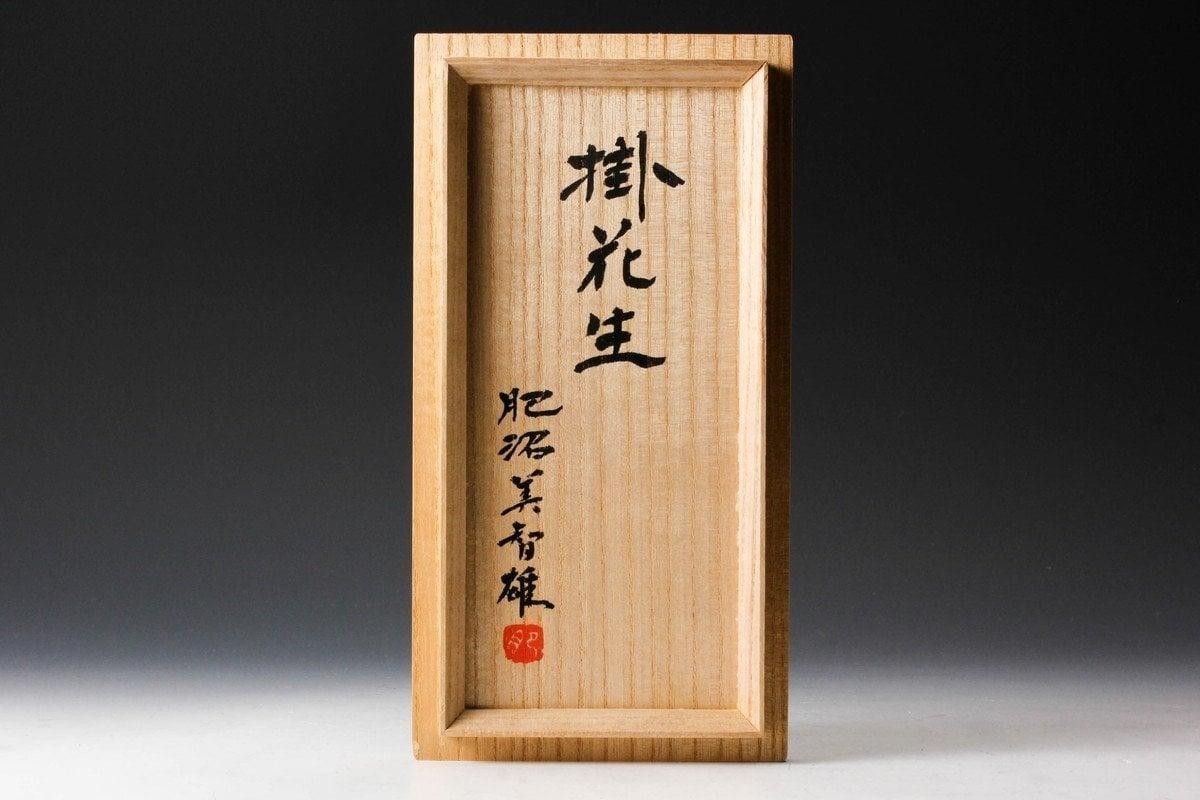 掛花生
肥沼美智雄